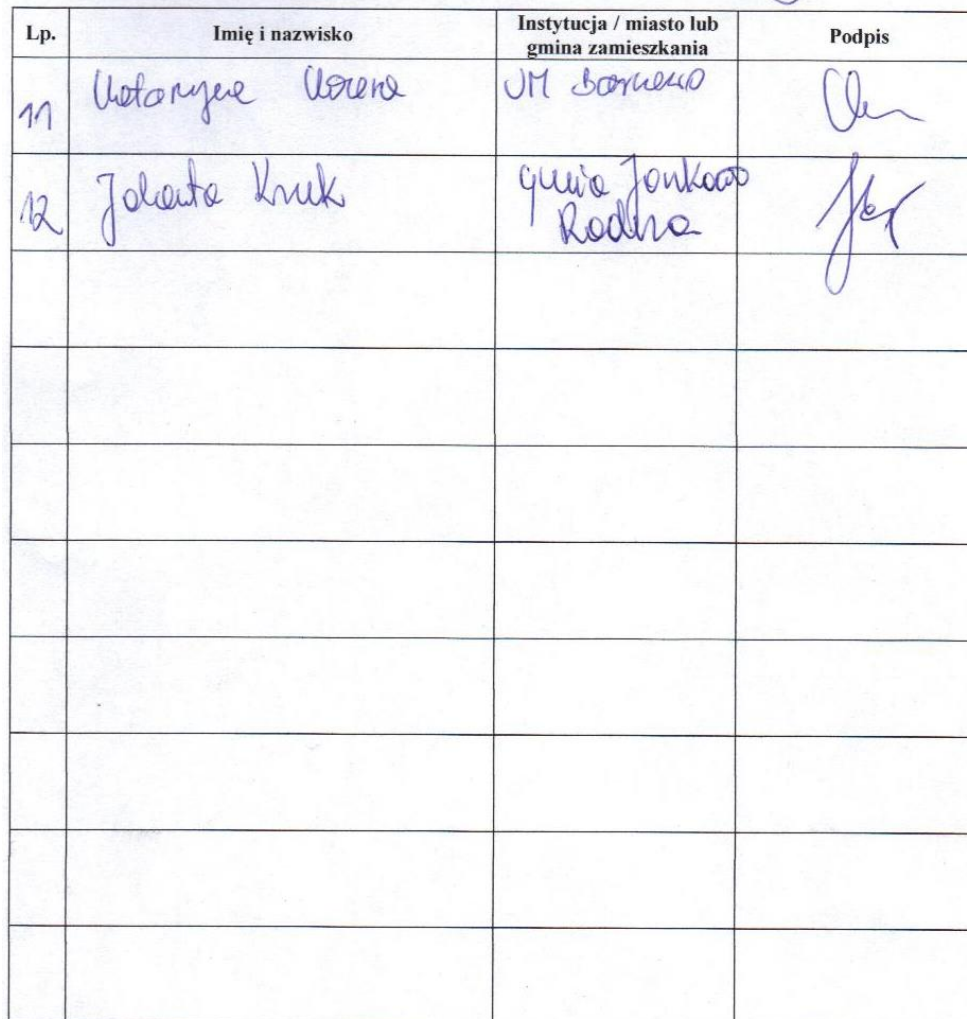 Lp.
Imię i nazwisko
Instytucja / miasto lub
gmina zamieszkania
Podpis
11
Katarzyna
UM
12
Jolanta Kruk
gmina Jonkowo